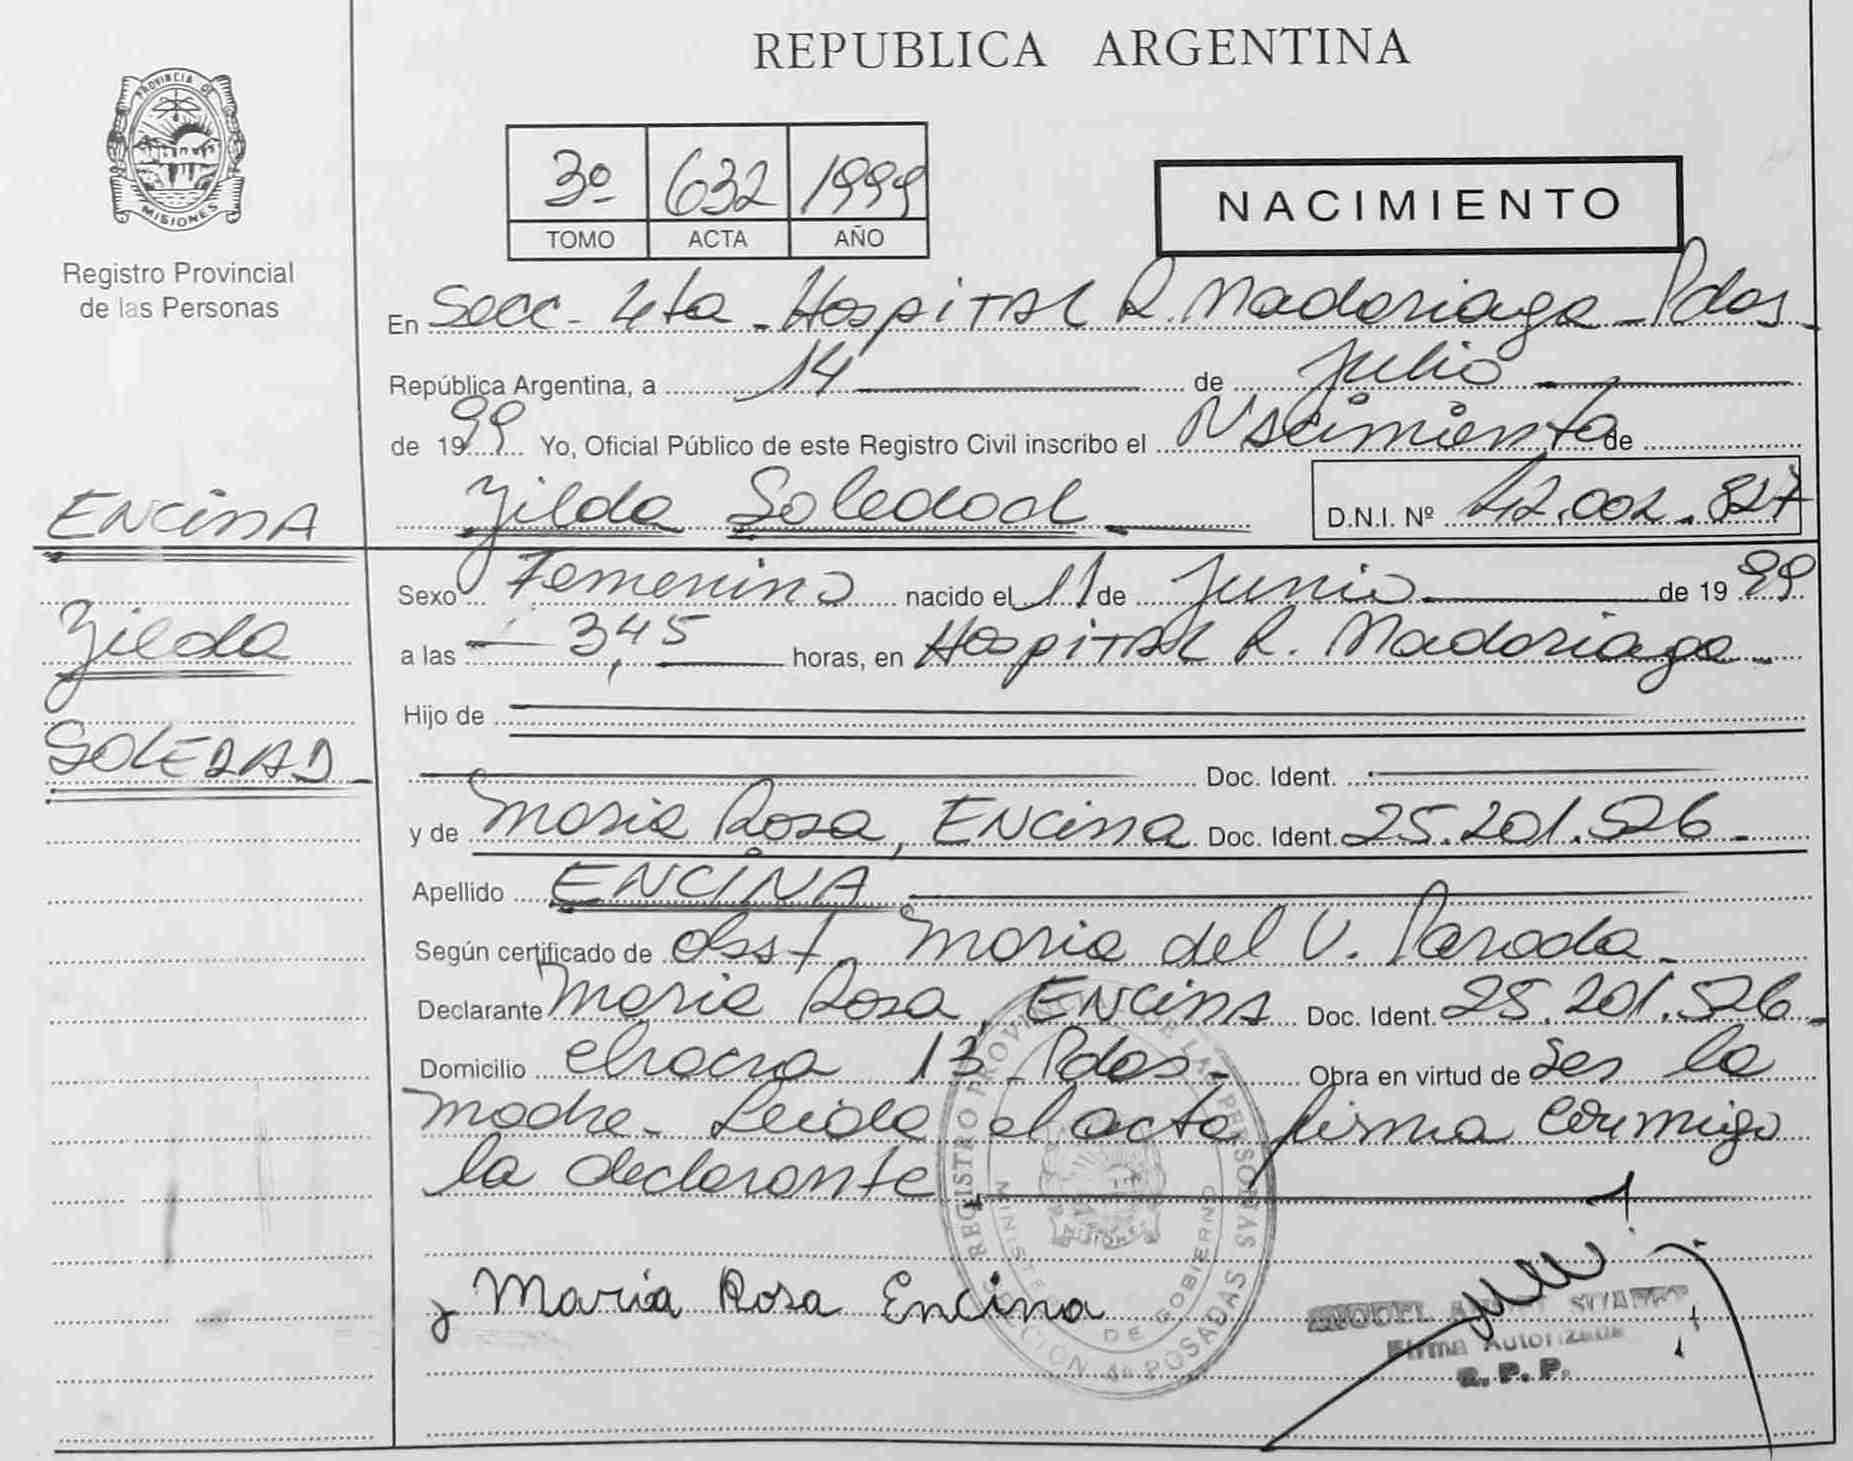 REPUBLICA ARGENTINA
PROVINCIA DE
MISIONES
Registro Provincial
de las Personas
3º 632 1999
TOMO ACTA AÑO
NACIMIENTO
En Secc. 4ta - Hospital R. Madariaga - Pdas -
República Argentina, a 14 de Julio
de 1999 Yo, Oficial Público de este Registro Civil inscribo el Nacimiento de
Zilda Soledad D.N.I. Nº 42.002.827
ENCINA
Zilda
SOLEDAD -
Sexo Femenino nacido el 11 de Junio de 1999
a las 3,45 horas, en Hospital R. Madariaga -
Hijo de
Doc. Ident.
y de Maria Rosa, ENCINA Doc. Ident. 25.201.526 -
Apellido ENCINA
Según certificado de Obst. Maria del V. Parada -
Declarante Maria Rosa, ENCINA Doc. Ident. 25.201.526 -
Domicilio Chacra 13 - Pdas - Obra en virtud de Ser la
madre - Leida el acta firma conmigo
la declarante
REGISTRO PROVINCIAL DE LAS PERSONAS
MINISTERIO DE GOBIERNO
SECCION 4a POSADAS
Maria Rosa Encina
Firma Autorizada
R. P. P.